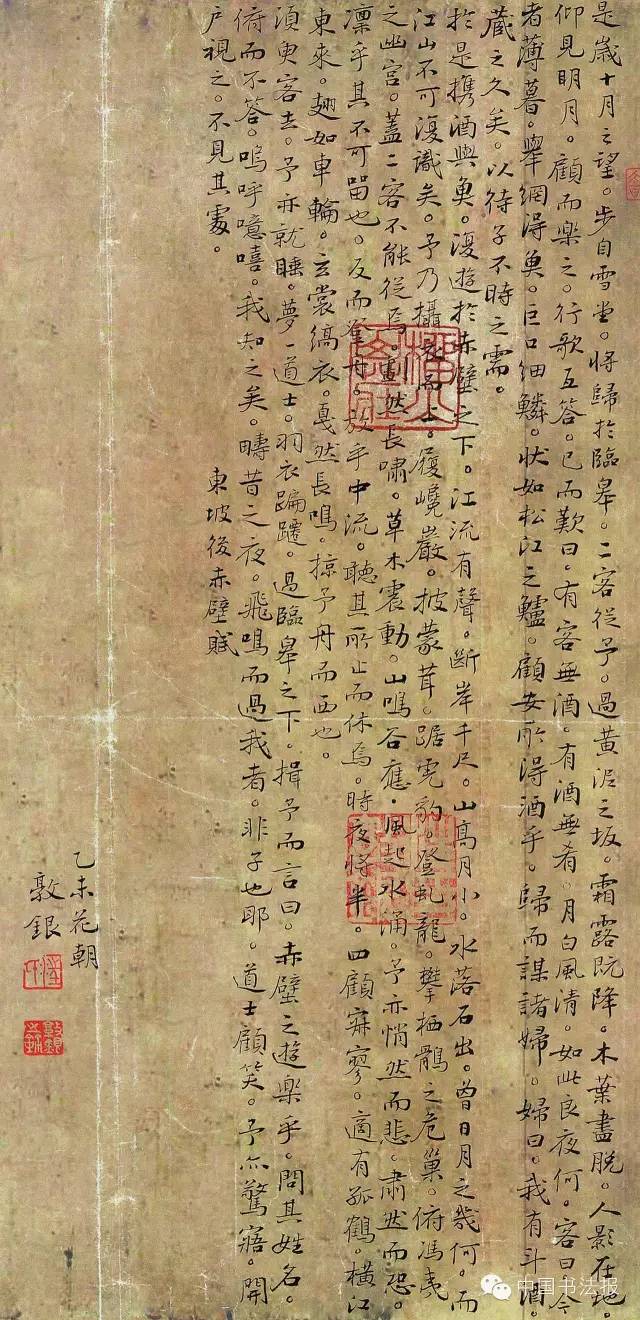 是歲十月之望。步自雪堂。將歸於臨皋。二客從予。過黃泥之坂。霜露既降。木葉盡脫。人影在地。
仰見明月。顧而樂之。行歌互答。已而歎曰。有客無酒。有酒無肴。月白風清。如此良夜何。客曰今
者薄暮。舉網得魚。巨口細鱗。狀如松江之鱸。顧安所得酒乎。歸而謀諸婦。婦曰。我有斗酒。
藏之久矣。以待子不時之需。
於是攜酒與魚。復遊於赤壁之下。江流有聲。斷岸千尺。山高月小。水落石出。曾日月之幾何。而
江山不可復識矣。予乃攝衣而上。履巉巖。披蒙茸。踞虎豹。登虬龍。攀栖鶻之危巢。俯馮夷
之幽宮。蓋二客不能從焉。劃然長嘯。草木震動。山鳴谷應。風起水涌。予亦悄然而悲。肅然而恐。
凜乎其不可留也。反而登舟。放乎中流。聽其所止而休焉。時夜將半。四顧寂寥。適有孤鶴。橫江
東來。翅如車輪。玄裳縞衣。戛然長鳴。掠予舟而西也。
須臾客去。予亦就睡。夢一道士。羽衣蹁躚。過臨皋之下。揖予而言曰。赤壁之遊樂乎。問其姓名。
俯而不答。嗚呼噫嘻。我知之矣。疇昔之夜。飛鳴而過我者。非子也耶。道士顧笑。予亦驚寤。開
戶視之。不見其處。
東坡後赤壁賦
乙未花朝
敦銀
中国书法报